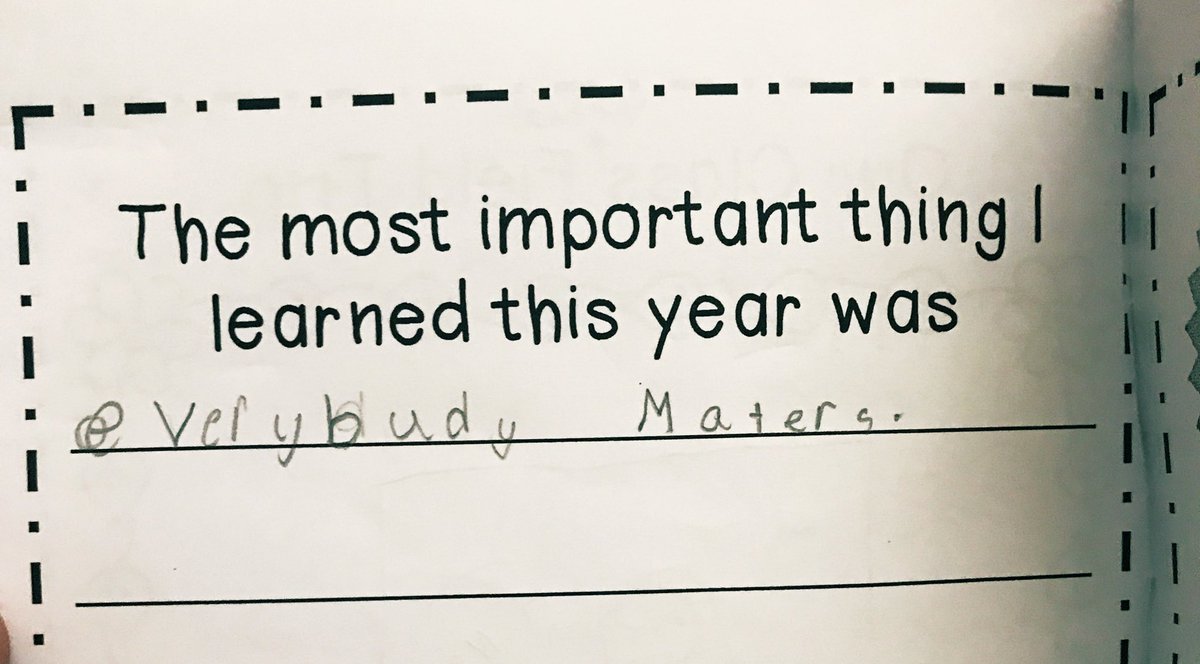 The most important thing I
learned this year was
everybudy Maters.